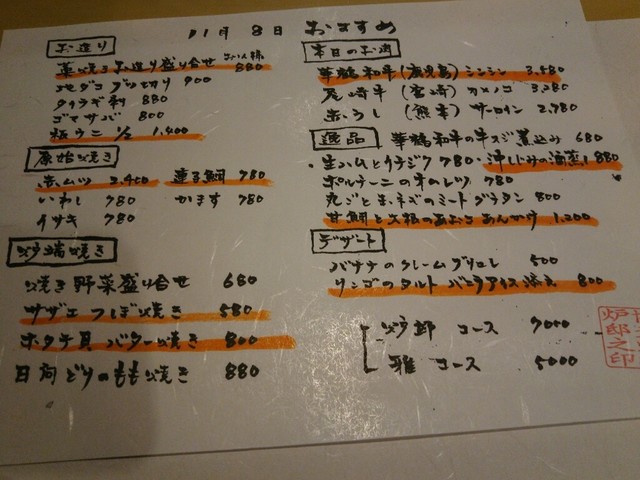 11月8日 おすすめ
お造り
藁焼きお造り盛り合せ お一人様 880
地ダコブツ切り 900
タイラギ刺 880
ゴマサバ 800
極ウニ 1/2 1,400
原始焼き
赤ムツ 2,400 連子鯛 780
いわし 780 かます 780
イサキ 780
炉端焼き
焼き野菜盛り合せ 680
サザエつぼ焼き 580
ホタテ貝バター焼き 800
日向どりのもも焼き 880
本日のお肉
華鶴和牛(鹿児島)シンシン 3,580
尾崎牛(宮崎)カメノコ 3,280
赤うし(熊本)サーロイン 2,980
逸品 華鶴和牛の牛スジ煮込み 680
生ハムとイチジク 780 ・沖しじみの酒蒸し 880
ポルチーニの 780
丸ごと玉ネギのミートグラタン 800
甘鯛と大根のあおさあんかけ 1,200
デザート
バナナのクレームブリュレ 500
リンゴのタルト バニラアイス添え 800
炉邸 コース 7000
雅 コース 5000
炉邸之印